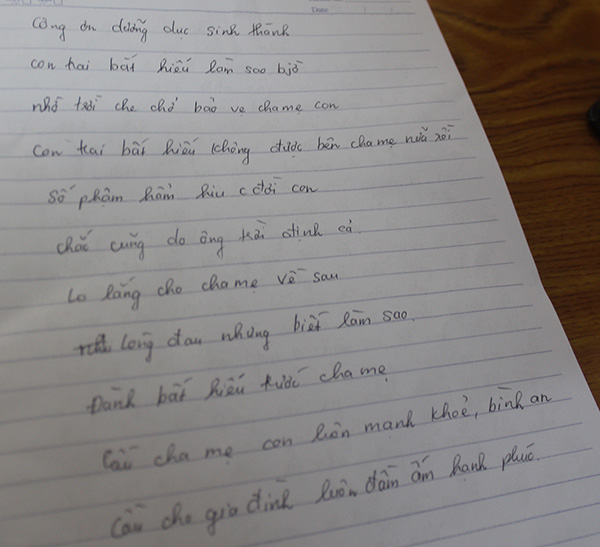 Công ơn dưỡng dục sinh thành
con trai bất hiếu làm sao bjờ
nhờ trời che chở bảo vệ cha mẹ con
con trai bất hiếu không được bên cha mẹ nữa rồi
Số phận hẩm hiu c đời con
chắc cũng do ông trời định cả
Lo lắng cho cha mẹ về sau
lòng đau nhưng biết làm sao.
Đành bất hiếu trước cha mẹ
Cầu cha mẹ con luôn mạnh khoẻ, bình an
Cầu cho gia đình luôn đầm ấm hạnh phúc.